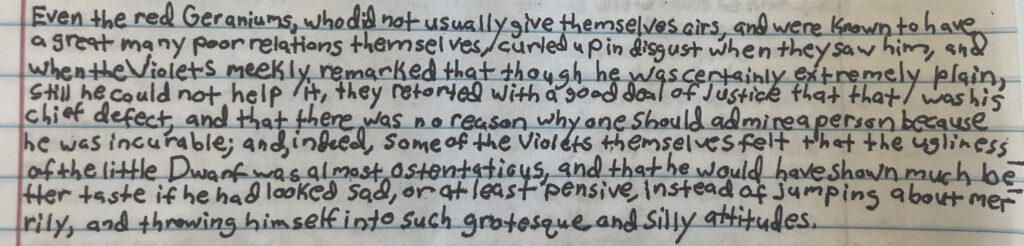 Even the red Geraniums, who did not usually give themselves airs, and were known to have
a great many poor relations themselves, curled up in disgust when they saw him, and
when the Violets meekly remarked that though he was certainly extremely plain,
still he could not help it, they retorted with a good deal of justice that that was his
chief defect, and that there was no reason why one should admire a person because
he was incurable; and, indeed, some of the Violets themselves felt that the ugliness
of the little Dwarf was almost ostentatious, and that he would have shown much be-
tter taste if he had looked sad, or at least pensive, instead of jumping about mer-
rily, and throwing himself into such grotesque and silly attitudes.